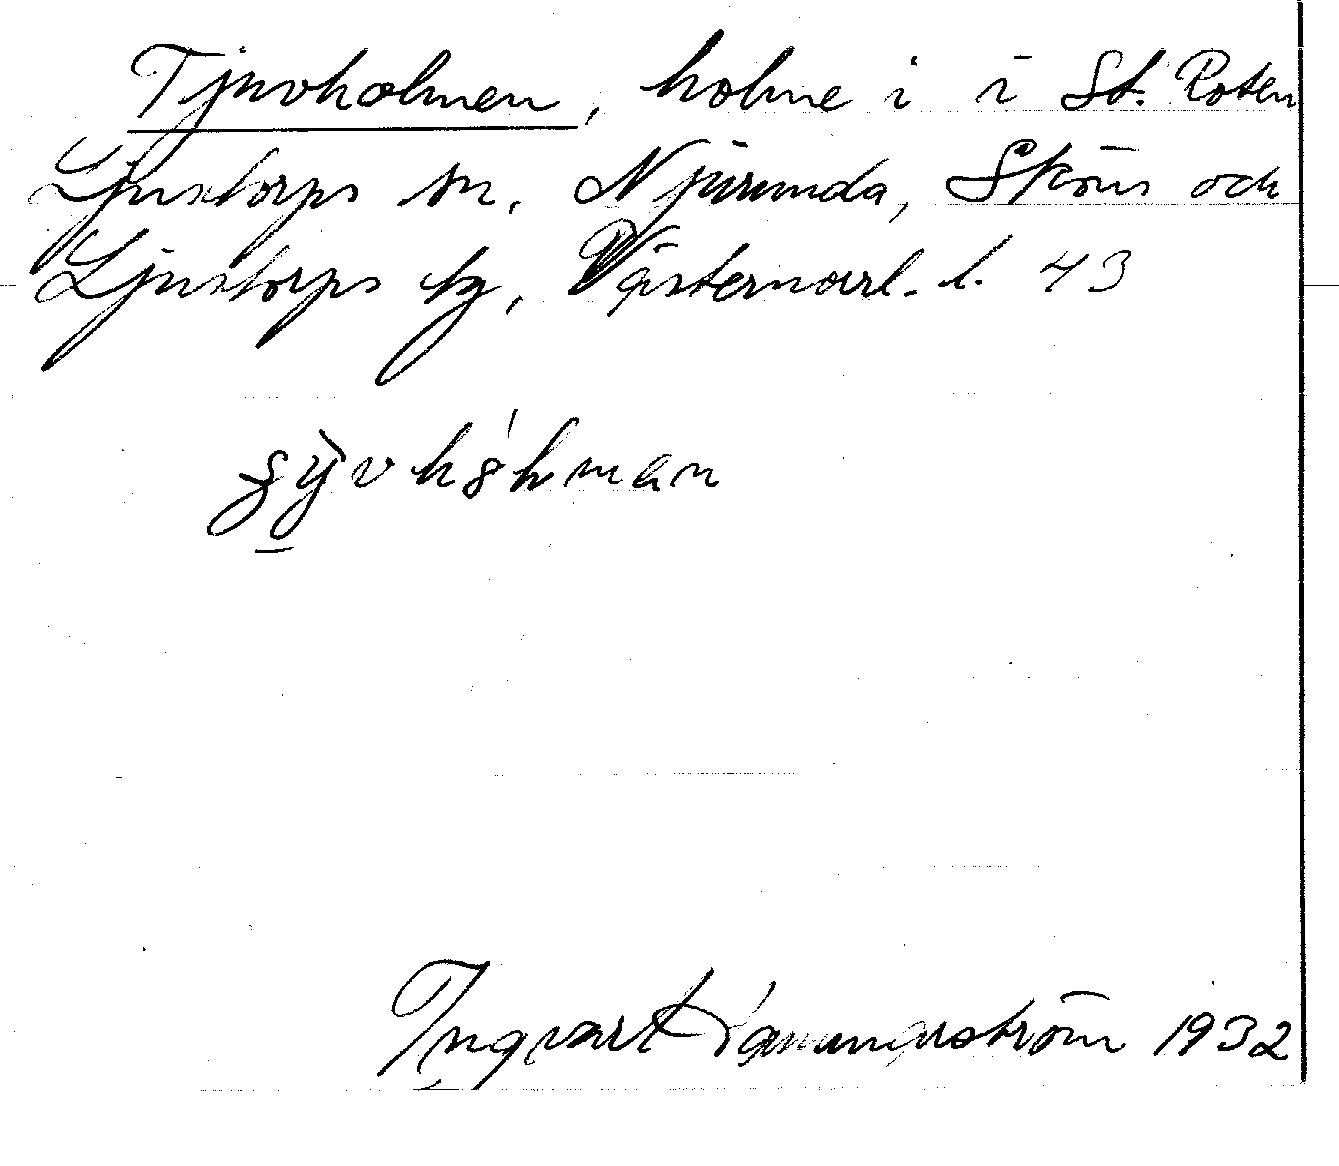 Tjuvholmen, holme i i St. Roten
Ljustorps sn, Njurunda, Sköns och
Ljustorps tg, Västernorrl. l. 43
Ingvart 1932